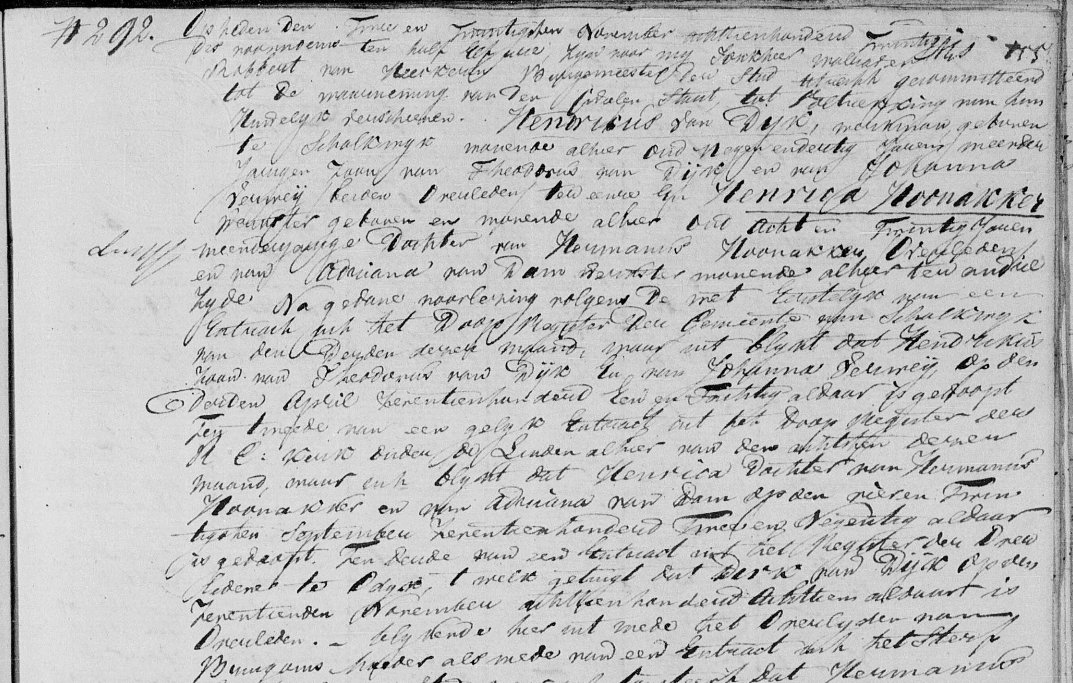 N 292. Op heden den Twee en Twintigsten November achttienhonderd Twintig
des voormiddens ten half elf ure, zyn voor my Jonkheer Melchior
Robbert van Heerkeren Burgemeester der Stad Utrecht gecommitteerd
tot de waarneming van den Civielen Staat, tot voltrekking van hun
Huwelyk verschenen. Hendricus van Dyk, werkman, geboren
te Schalkwyk wonende alhier oud Negen endertig Jaaren meerder
Jarigen Zoon van Theodorus van Dyk en van Johanna
beiden Overleden, ter eenre En Henrica Hoonakker
geboren en wonende alhier oud acht en Twintig Jaaren
meerderjarige Dochter van Hermanus Hoonakker, Overleden
en van Adriana van Dam wonende alhier ter andere
zyde Na gedane voorlezing volgens De wet Eerstelyk van een
Extract uit het Doop Register der Gemeente van Schalkwyk
van den Derden dezer maand, waar uit blykt dat Hendrikus
Zoon van Theodorus van Dyk En van Johanna op den
Derden April Zeventienhonderd Een en Tachtig aldaar is gedoopt
Ten tweede van een gelyk Extract uit het Doop Register der
R C: kerk onder de Linden alhier van den achtsten dezer
maand, waar uit blykt dat Henrica Dochter van Hermanus
Hoonakker en van Adriana van Dam op den vier en Twin
tigsten September Zeventienhonderd Twee en Negentig aldaar
is gedoopt. Ten derde van een Extract uit het Register der Over
ledenen te Odyk, t welk getuigt dat Derk van Dyk op den
Zeventienden November achttienhonderd Achttien aldaar is
Overleden. - blykende hier uit mede het Overlyden van
Bruigoms Vader als mede van een Extract uit het Sterf
dat Hermanus